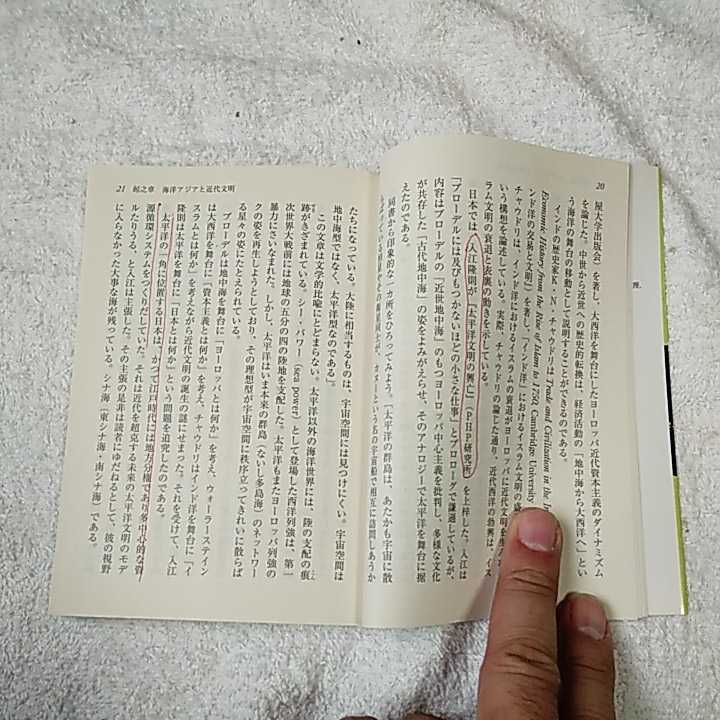 20
屋大学出版会）を著し、大西洋を舞台にしたヨーロッパ近代資本主義のダイナミズム
を論じた。中世から近世への歴史的転換は、経済活動の「地中海から大西洋へ」とい
う海洋の舞台の移動として説明することができるのである。
インドの歴史家K・N・チャウドリは Trade and Civilisation in the In
Economic History from the Rise of Islam to 1750, Cambridge University
ンド洋の交易と文明』）を著し、「インド洋」におけるイスラム文明の盛
チャウドリは、インド洋におけるイスラムの衰退がヨーロッパに近代文明を
いう構想を論述している。実際、チャウドリの論じた通り、近代西洋の勃興は、イス
ラム文明の衰退と表裏の動きを示している。
日本では、入江隆則が『太平洋文明の興亡』（PHP研究所）を上梓した。入江は
「ブローデルには及びもつかないほどの小さな仕事」とプロローグで謙遜しているが、
内容はブローデルの「近世地中海」のもつヨーロッパ中心主義を批判し、多様な文化
が共存した「古代地中海」の姿をよみがえらせ、そのアナロジーで太平洋を舞台に据
えたのである。
同書から印象的な一カ所をひろってみよう。「太平洋の群島は、あたかも宇宙に散
カヌーという名の宇宙船で相互に訪問しあうか
21 起之章 海洋アジアと近代文明
たちになっている。大陸に相当するものは、宇宙空間には見つけにくい。宇宙空間は
地中海型ではなく、太平洋型なのである」。
この文章は文学的比喩にとどまらない。太平洋以外の海洋世界には、陸の支配の痕
跡がきざまれている。シー・パワー（sea power）として登場した西洋列強は、第一
次世界大戦前には地球の五分の四の陸地を支配した。太平洋もまたヨーロッパ列強の
暴力にさいなまれた。しかし、太平洋はいま本来の群島（ないし多島海）のネットワー
クの姿を再生しようとしており、その理想型が宇宙空間に秩序立ってきれいに散らば
る星々の姿にたとえられている。
ブローデルは地中海を舞台に「ヨーロッパとは何か」を考え、ウォーラーステイン
は大西洋を舞台に「資本主義とは何か」を考え、チャウドリはインド洋を舞台に「イ
スラムとは何か」を考えながら近代文明の誕生の謎にせまった。それを受けて、入江
隆則は太平洋を舞台に「日本とは何か」という問題を追究したのである。
太平洋の一角に位置する日本は、かつて江戸時代には地方分権であり多中心的な資
源循環システムをつくりだしていた。それは近代を超克する未来の太平洋文明のモデ
ルたりうる、と入江は主張した。その主張の是非は読者にゆだねるとして、彼の視野
に入らなかった大事な海が残っている。シナ海（東シナ海・南シナ海）である。